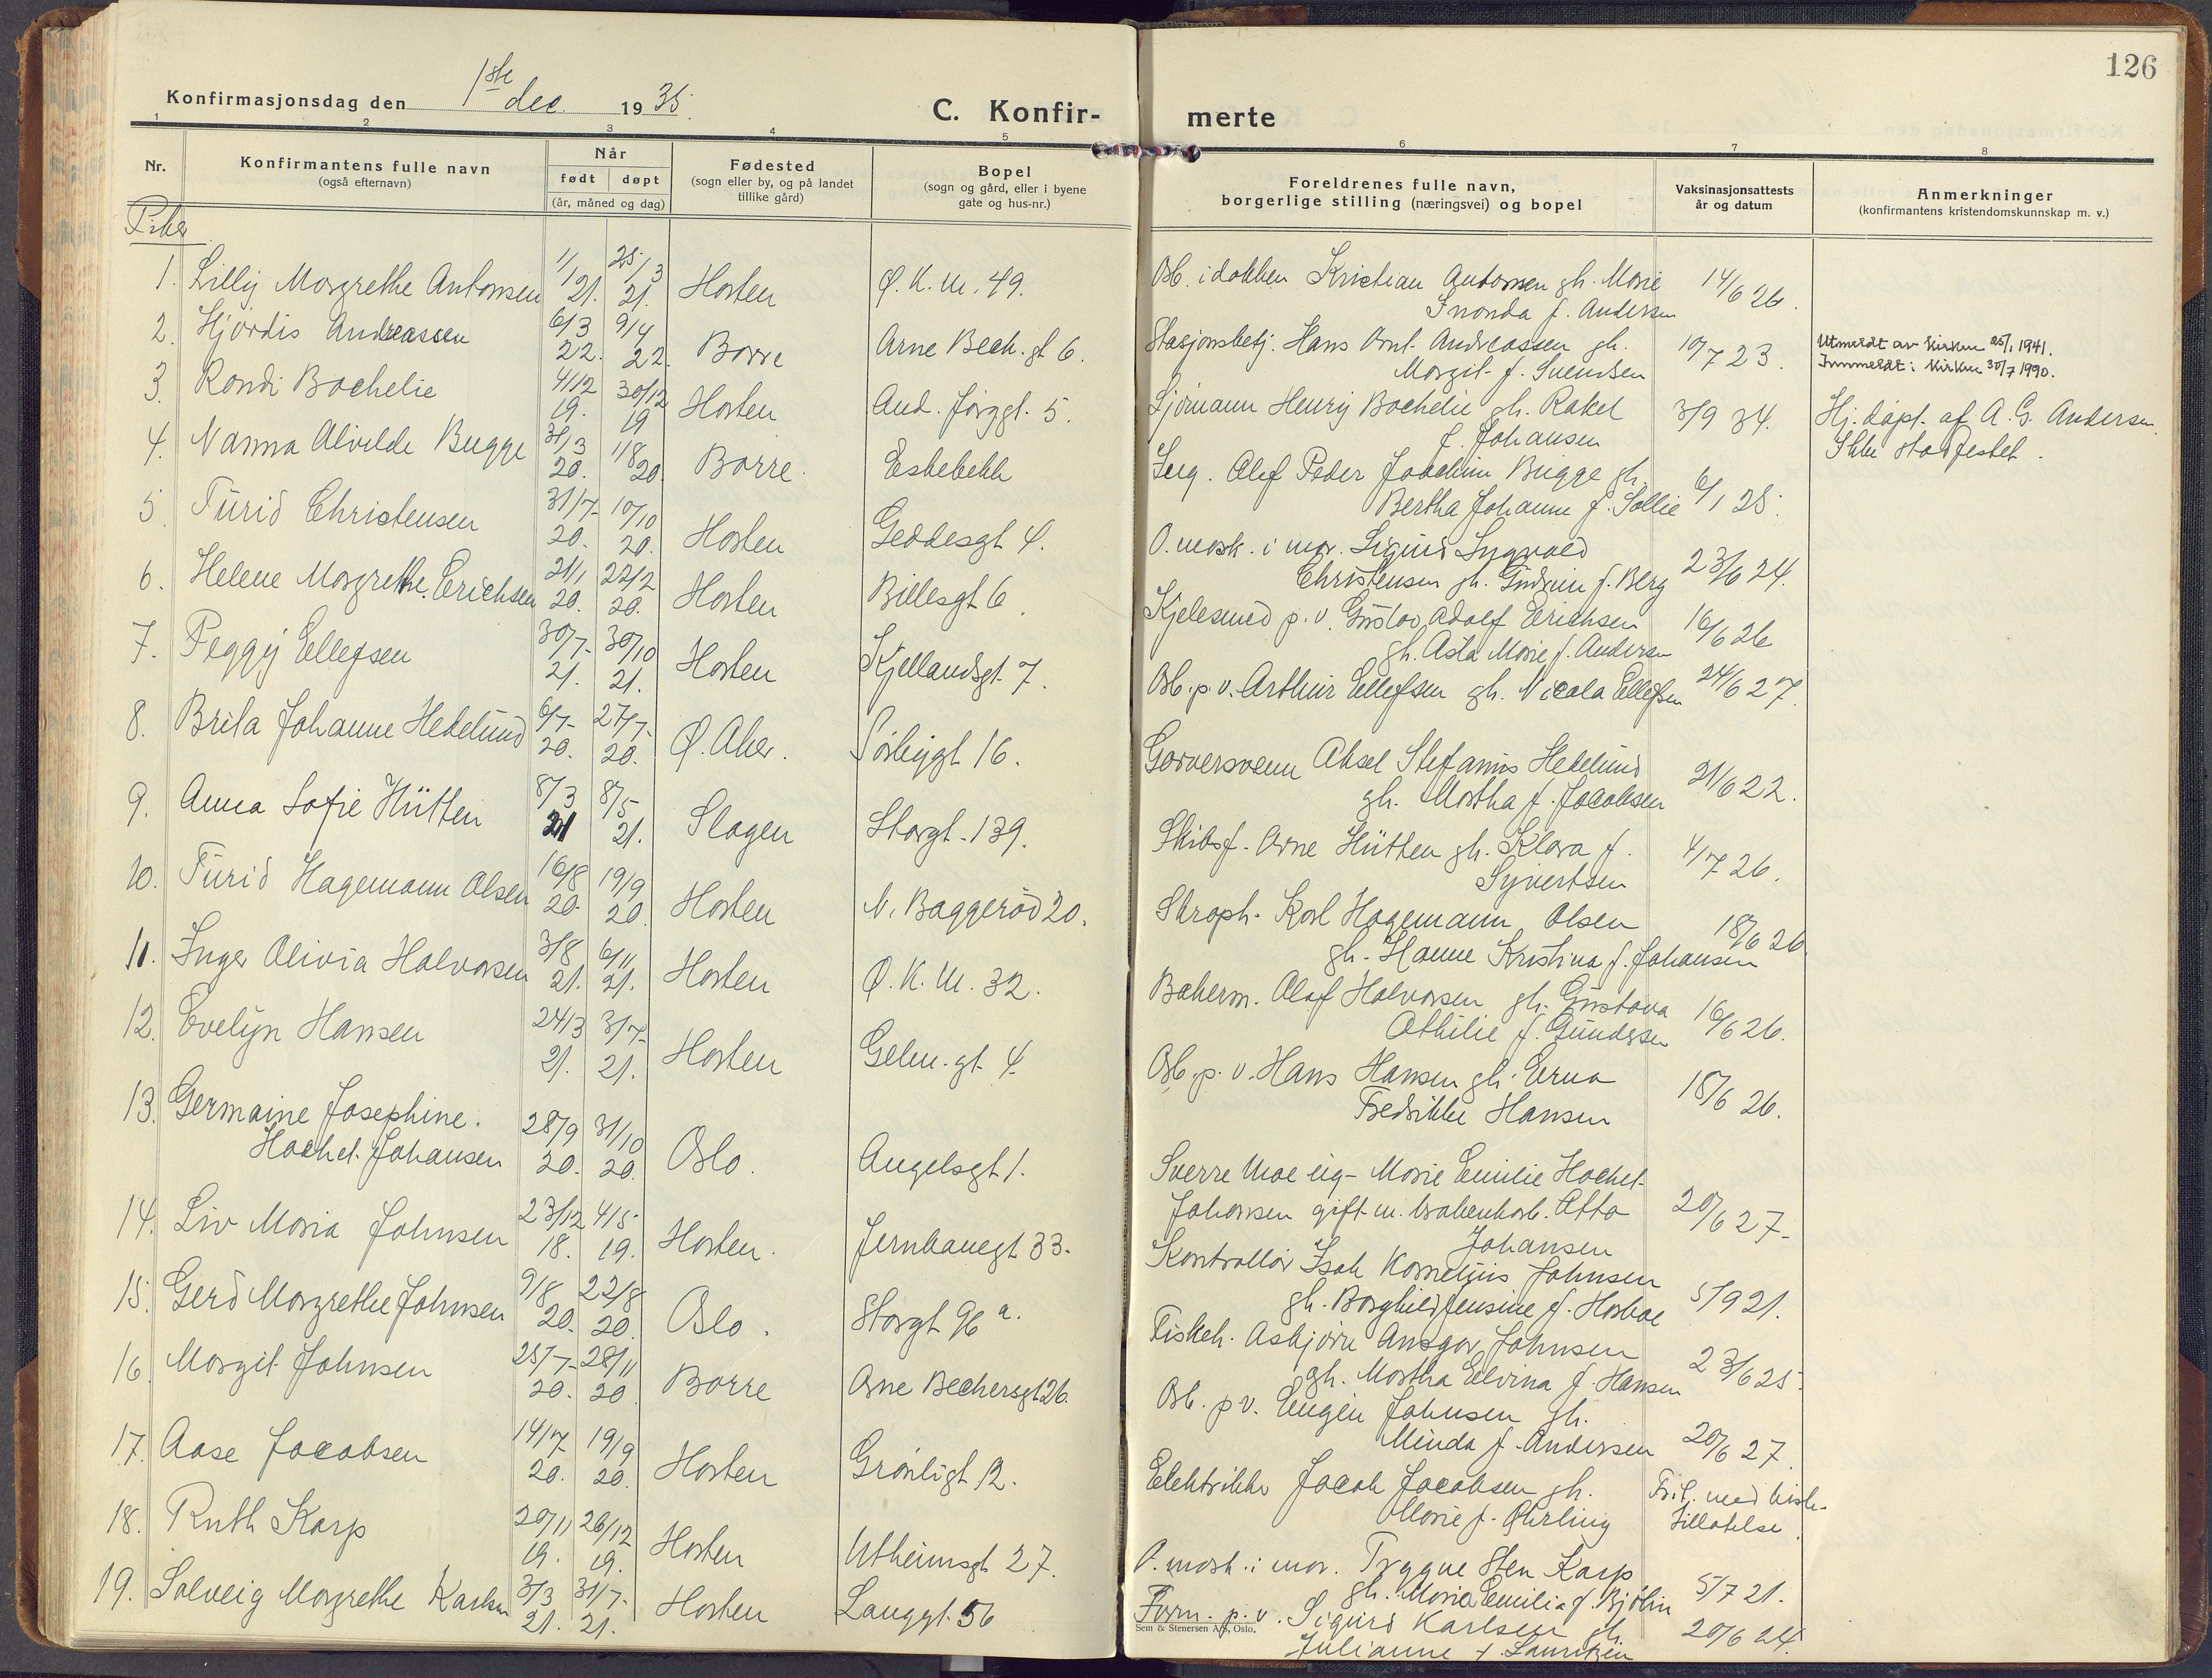 126
Konfirmasjonsdag den 1ste dec. 1935.
C. Konfir-
merte
1 2 3 4 5 6 7 8
Nr.
Konfirmantens fulle navn
(også efternavn)
Når
født døpt
(år, måned og dag)
Fødested
(sogn eller by, og på landet
tillike gård)
Bopel
(sogn og gård, eller i byene
gate og hus-nr.)
Foreldrenes fulle navn,
borgerlige stilling (næringsvei) og bopel
Vaksinasjonsattests
år og datum
Anmerkninger
(konfirmantens kristendomskunnskap m. v.)
Piker
1. Lilly Margrethe Antonsen 1/1 21. 25/3 21. Horten Ø. K. M. 49. Arb. i dokken Kristian Antonsen gh. Marie
f. Andersen 14/6 26.
2. Hjørdis Andreassen 6/3 22. 9/4 22. Borre Arne Bech. gt 6. Stasjonsbetj. Hans Arnt. Andreassen gh.
Margit f. Svendsen 10/7 23. Utmeldt av kirken 25/1 1941.
Innmeldt i kirken 30/7 1990.
3. Randi Bachelie 4/12 19. 30/12 19 Horten And. Jørggt. 5. Sjømann Henry Bachelie gh. Rakel
f. Johansen 3/9 34. Hj. døpt. af A. G. Andersen.
Ikke stadfestet.
4. Nanna Alvilde Bugge 31/3 20. 1/8 20. Borre. Eskebekk Serg. Olef Peder Joachim Bugge gh.
Bertha Johanne f. Sollie 6/1 25.
5. Turid Christensen 31/7 20. 10/10 20. Horten Geddesgt 4. O. mask. i mar. Sigurd Sygvald
Christensen gh. Gudrun f. Berg 23/6 24.
6. Helene Margrethe Erichsen 21/1 20. 22/2 20. Horten Billesgt 6. Kjelesmed p. v. Gustav Adolf Erichsen
gh. Asta Marie f. Andersen 16/6 26
7. Peggy Ellefsen 30/7 21. 30/10 21. Horten Kjellandsgt. 7. Arb. p. v. Arthur Ellefsen gh. Nicola Ellefsen 24/6 27.
8. Brita Johanne Hedelund 6/7 20. 27/7 20. Ø. Aker. Parkgt 16. Garversvenn Aksel Stefanus Hedelund
gh. Martha f. Jacobsen 21/6 22.
9. Anna Sofie Hütten 8/3 21 8/5 21. Slagen Storgt. 139. Skibsf. Arne Hütten gh. Klara f.
Syvertsen 4/7 26.
10. Turid Hagemann Olsen 16/8 20. 19/9 20. Horten N. Baggerød 20. Karl Hagemann Olsen
gh. Hanne Kristina f. Johansen 18/6 26.
11. Inger Olivia Halvorsen 3/8 21. 6/11 21. Horten Ø. K. M. 32. Bakerm. Olaf Halvorsen gh. Gustava
Othilie f. Gundersen 16/6 26.
12. Evelyn Hansen 24/3 21. 3/7 21. Horten Gelm. gt 4. Arb. p. v. Hans Hansen gh. Erna
Fredrikke Hansen 18/6 26.
13. Germaine Josephine
Hachel. Johansen 28/9 20. 31/10 20. Oslo. Augelsgt 1. Sverre Moe ug. Marie Emilie Hachel-
Johansen gift m. Otto
Johansen 20/6 27.
14. Liv Maria Johnsen 23/12 18. 4/5 19. Horten. Jernbanegt 33. Kontrollør Isak Kornelius Johnsen
gh. Borghild Jensine f. 5/9 21.
15. Gerd Margrethe Johnsen 9/8 20. 22/8 20. Oslo. Storgt 96 a. Fiskeh. Asbjørn Ansgar Johnsen
gh. Martha Elvina f. Hansen 23/6 25.
16. Margit Johnsen 25/7 20. 28/11 20 Borre Arne Bechersgt 26. Arb. p v. Eugen Johnsen gh.
Minda f. Andersen 20/6 27.
17. Aase Jacobsen 14/7 20. 19/9 20. Horten Grønligt 12. Elektriker Jacob Jacobsen gh.
Marie f. Øhrling Frit. med
tillatelse.
18. Ruth Karp 20/11 19. 26/12 19. Horten Utheimsgt 27. O. mask. i mar. Trygve Sten Karp
gh. Marie Emilia f. Bjølin 5/7 21.
19. Solveig Margrethe Karlsen 3/3 21. 31/7 21. Horten Langgt. 56 Form. p. v. Sigurd Karlsen gh.
Julianne f. Lauritzen 20/6 24.
Sem & Stenersen A/S, Oslo.